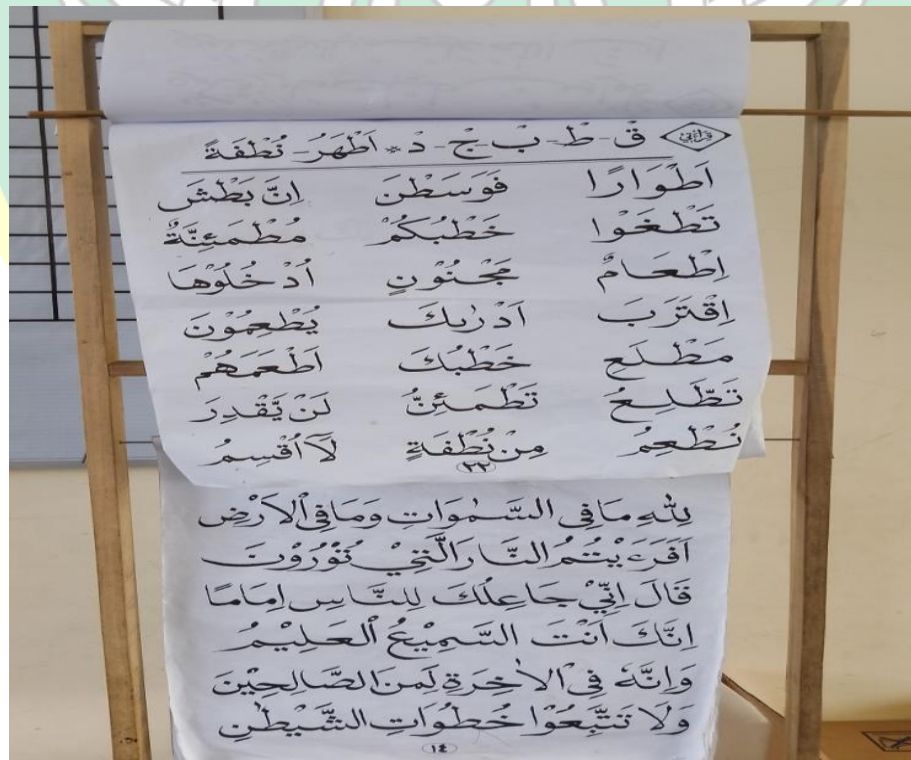 قرآءتي قْ - طْ - بْ - جْ - دْ * اَطْهَرُ - نُطْفَةً
اَطْوَارًا فَوَسَطْنَ اِنَّ بَطْشَ
تَطْغَوْا خَطْبُكُمْ مُطْمَئِنَّةٌ
اِطْعَامٌ مَجْنُوْنٍ اُدْخُلُوْهَا
اِقْتَرَبَ اَدْرٰىكَ يُطْعِمُوْنَ
مَطْلَعِ خَطْبُكَ اَطْعَمَهُمْ
تَطَّلِعُ تَطْمَئِنُّ لَنْ يَّقْدِرَ
نُطْعِمُ مِنْ نُطْفَةٍ لَآ اُقْسِمُ
٢٢
لِلّٰهِ مَا فِى السَّمٰوَاتِ وَمَا فِى الْاَرْضِ
اَفَرَءَيْتُمُ النَّارَ الَّتِيْ تُوْرُوْنَ
قَالَ اِنِّيْ جَاعِلُكَ لِلنَّاسِ اِمَامًا
اِنَّكَ اَنْتَ السَّمِيْعُ الْعَلِيْمُ
وَاِنَّهٗ فِى الْاٰخِرَةِ لَمِنَ الصَّالِحِيْنَ
وَلَا تَتَّبِعُوْا خُطُوَاتِ الشَّيْطٰنِ
١٤